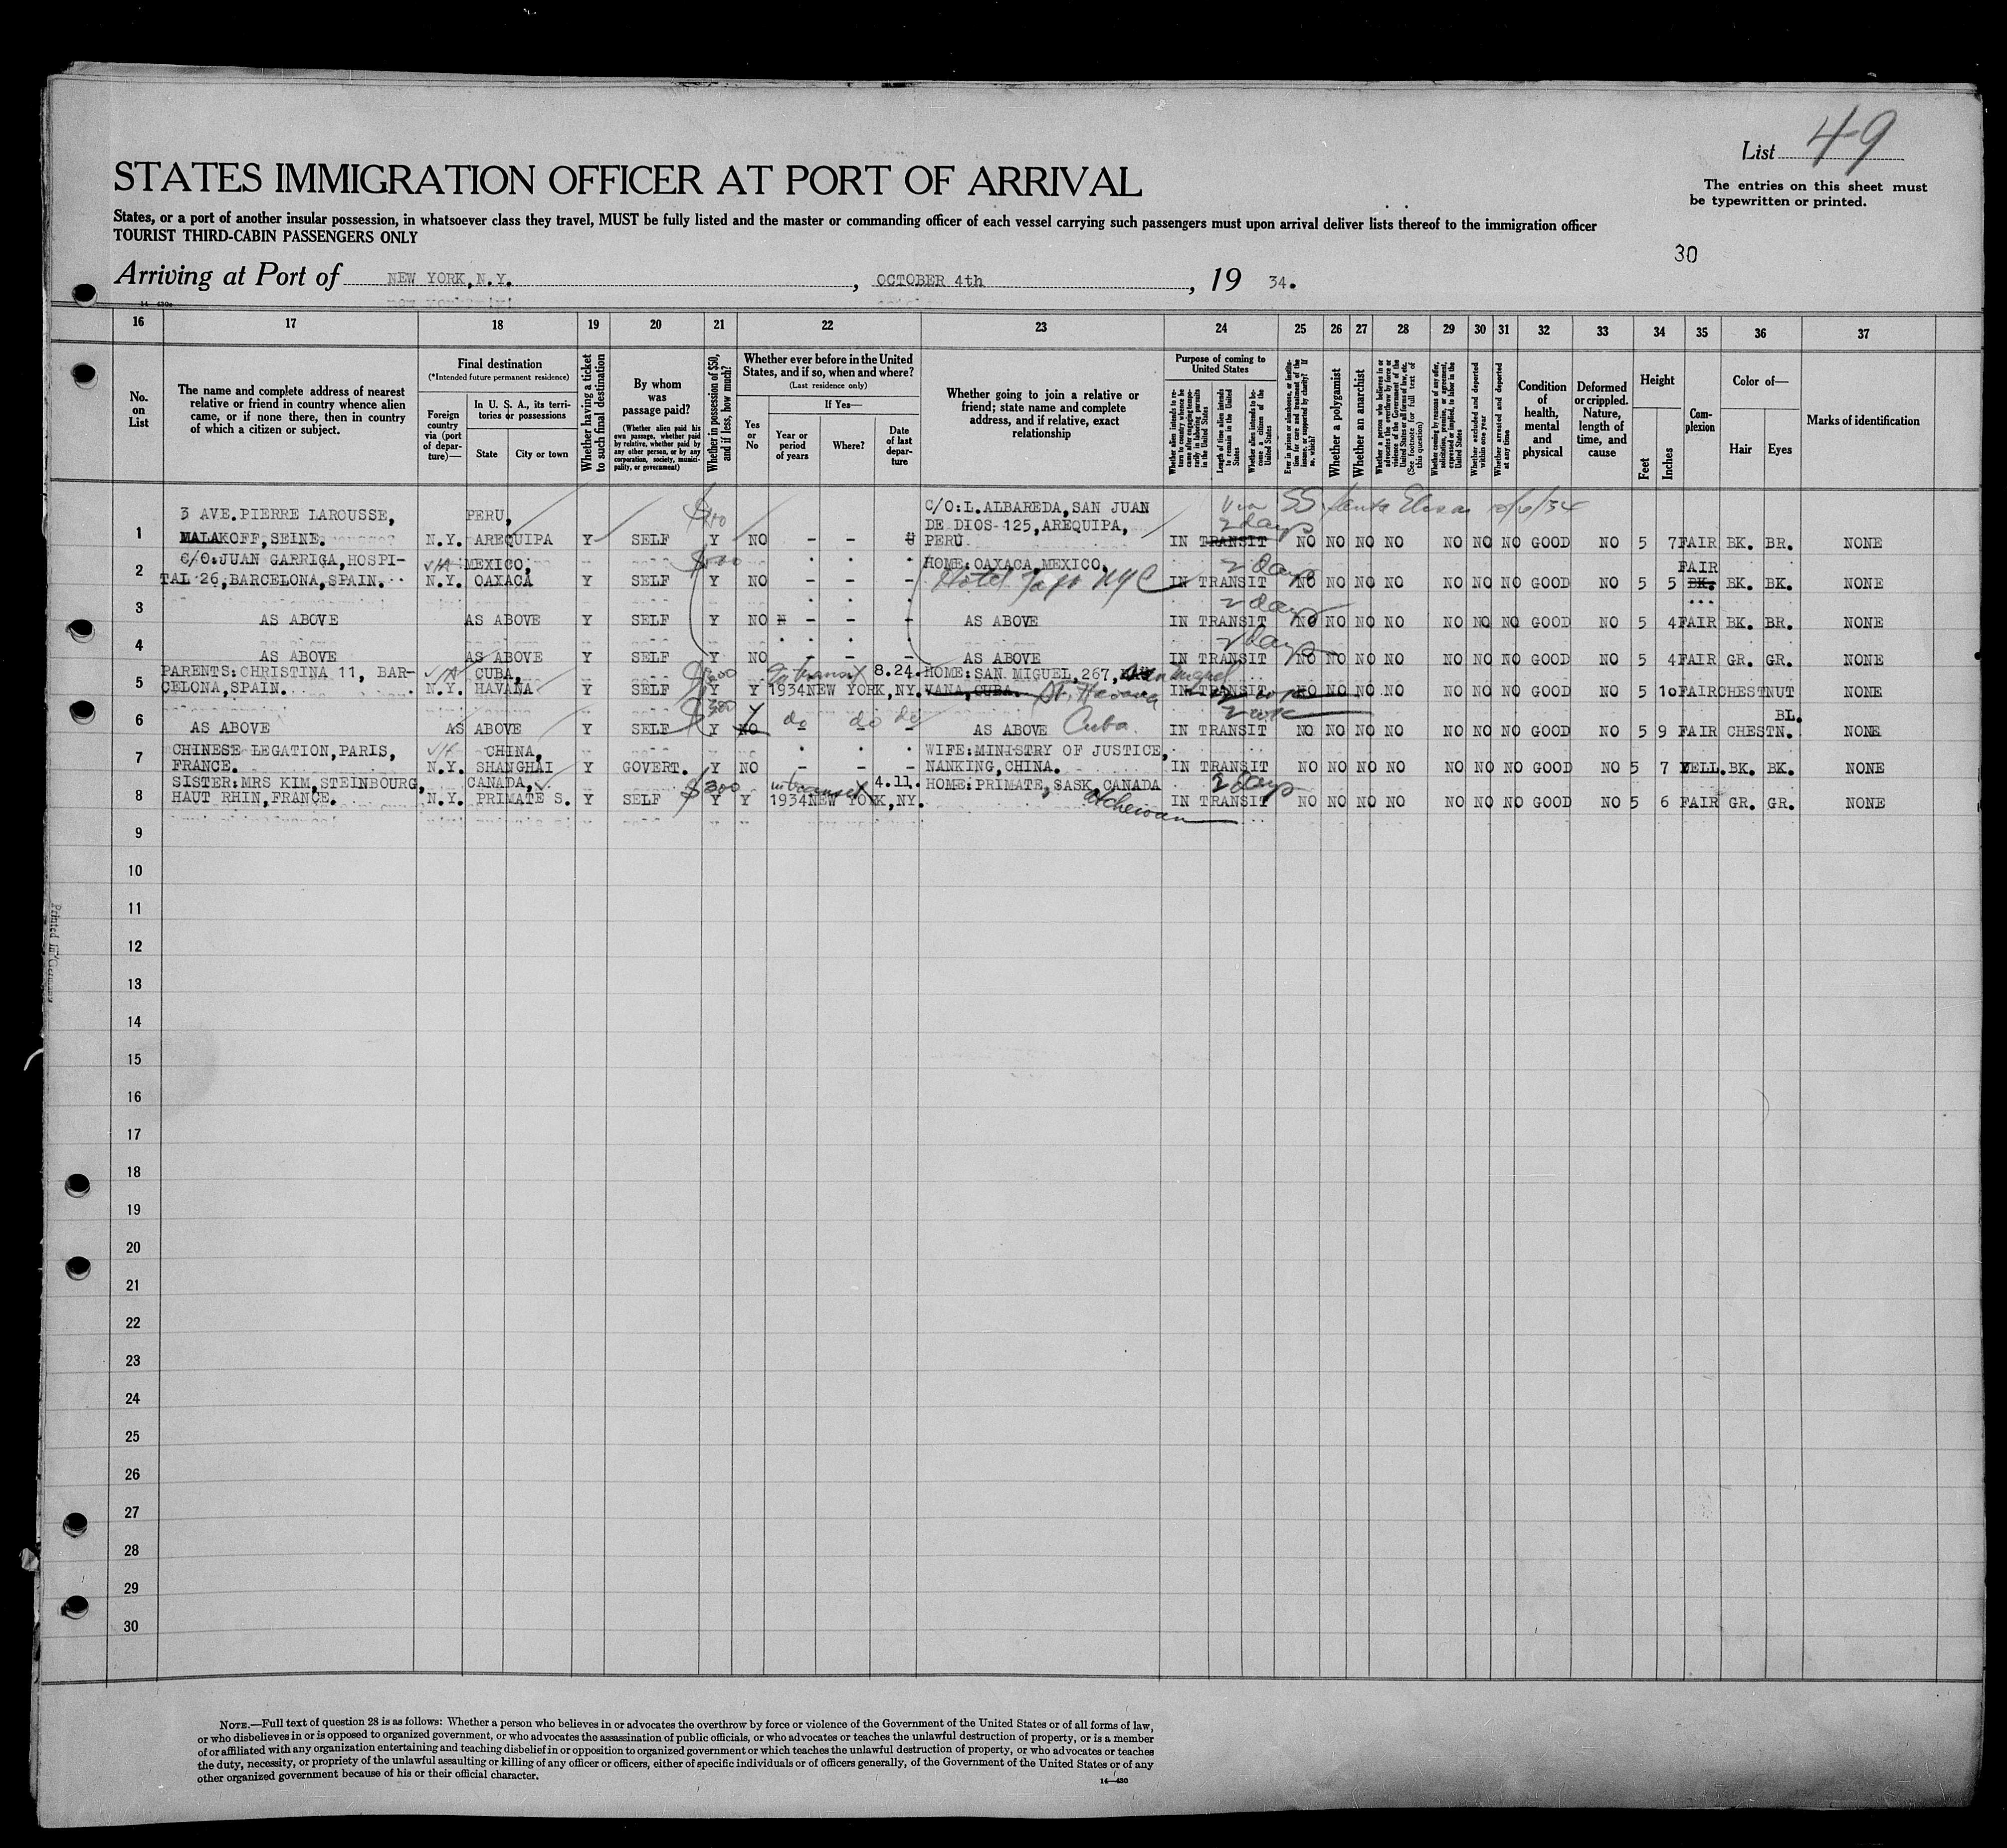 List 49
STATES IMMIGRATION OFFICER AT PORT OF ARRIVAL
The entries on this sheet must
be typewritten or printed.
States, or a port of another insular possession, in whatsoever class they travel, MUST be fully listed and the master or commanding officer of each vessel carrying such passengers must upon arrival deliver lists thereof to the immigration officer
TOURIST THIRD-CABIN PASSENGERS ONLY
30
Arriving at Port of NEW YORK, N.Y. , OCTOBER 4th , 19 34.
16 17 18 19 20 21 22 23 24 25 26 27 28 29 30 31 32 33 34 35 36 37
No. on List
The name and complete address of nearest relative or friend in country whence alien came, or if none there, then in country of which a citizen or subject.
Final destination
(*Intended future permanent residence)
Foreign country via (port of departure)—
In U. S. A., its territories or possessions
State
City or town
Whether having a ticket to such final destination
By whom was passage paid?
(Whether alien paid his own passage, whether paid by relative, whether paid by any other person, or by any corporation, society, municipality, or government)
Whether in possession of $50, and if less, how much?
Whether ever before in the United States, and if so, when and where?
(Last residence only)
Yes or No
If Yes—
Year or period of years
Where?
Date of last departure
Whether going to join a relative or friend; state name and complete address, and if relative, exact relationship
Purpose of coming to United States
Whether alien intends to return to country whence he came after engaging temporarily in laboring pursuits in the United States
Length of time alien intends to remain in the United States
Whether alien intends to become a citizen of the United States
Ever in prison or almshouse, or institution for care and treatment of the insane, or supported by charity? If so, which?
Whether a polygamist
Whether an anarchist
Whether a person who believes in or advocates the overthrow by force or violence of the Government of the United States or all forms of law, etc. (See footnote for full text of this question)
Whether coming by reason of any offer, solicitation, promise, or agreement, expressed or implied, to labor in the United States
Whether excluded and deported within one year
Whether arrested and deported at any time
Condition of health, mental and physical
Deformed or crippled. Nature, length of time, and cause
Height
Feet
Inches
Complexion
Color of—
Hair
Eyes
Marks of identification
3 AVE.PIERRE LAROUSSE, PERU, $ C/O:L.ALBAREDA,SAN JUAN Via SS Santa Elisa 10/6/34
DE DIOS-125,AREQUIPA, 2 days
1 MALAKOFF,SEINE. N.Y. AREQUIPA Y SELF Y NO - - - PERU IN TRANSIT NO NO NO NO NO NO NO GOOD NO 5 7 FAIR BK. BR. NONE
C/O:JUAN GARRIGA,HOSPI- via MEXICO, $ HOME:OAXACA,MEXICO, 2 days FAIR
2 TAL 26,BARCELONA,SPAIN. N.Y. OAXACA Y SELF Y NO - - - Hotel Taft NYC IN TRANSIT NO NO NO NO NO NO NO GOOD NO 5 5 BK. BK. BK. NONE
2 days
3 AS ABOVE AS ABOVE Y SELF Y NO - - - AS ABOVE IN TRANSIT NO NO NO NO NO NO NO GOOD NO 5 4 FAIR BK. BR. NONE
2 days
4 AS ABOVE AS ABOVE Y SELF Y NO - - - AS ABOVE IN TRANSIT NO NO NO NO NO NO NO GOOD NO 5 4 FAIR GR. GR. NONE
PARENTS:CHRISTINA 11, BAR- via CUBA, in transit 8.24. HOME:SAN MIGUEL,267, San Miguel
5 CELONA,SPAIN. N.Y. HAVANA Y SELF Y Y 1934 NEW YORK,NY. VANA,CUBA. St. Havana IN TRANSIT NO NO NO NO NO NO NO GOOD NO 5 10 FAIR CHESTNUT NONE
$300 Y do do do BL.
6 AS ABOVE AS ABOVE Y SELF Y NO - - - AS ABOVE Cuba. IN TRANSIT NO NO NO NO NO NO NO GOOD NO 5 9 FAIR CHESTN. NONE
CHINESE LEGATION,PARIS, CHINA, WIFE:MINISTRY OF JUSTICE,
7 FRANCE. N.Y. SHANGHAI Y GOVERT. Y NO - - - NANKING,CHINA. IN TRANSIT NO NO NO NO NO NO NO GOOD NO 5 7 YELL. BK. BK. NONE
SISTER:MRS KIM,STEINBOURG, CANADA, $300 in transit 4.11. HOME:PRIMATE,SASK,CANADA 2 days
8 HAUT RHIN,FRANCE. N.Y. PRIMATE S. Y SELF Y Y 1934 NEW YORK,NY. atchewan IN TRANSIT NO NO NO NO NO NO NO GOOD NO 5 6 FAIR GR. GR. NONE
9
10
11
12
13
14
15
16
17
18
19
20
21
22
23
24
25
26
27
28
29
30
NOTE.—Full text of question 28 is as follows: Whether a person who believes in or advocates the overthrow by force or violence of the Government of the United States or of all forms of law,
or who disbelieves in or is opposed to organized government, or who advocates the assassination of public officials, or who advocates or teaches the unlawful destruction of property, or is a member
of or affiliated with any organization entertaining and teaching disbelief in or opposition to organized government or which teaches the unlawful destruction of property, or who advocates or teaches
the duty, necessity, or propriety of the unlawful assaulting or killing of any officer or officers, either of specific individuals or of officers generally, of the Government of the United States or of any
other organized government because of his or their official character.
14—430